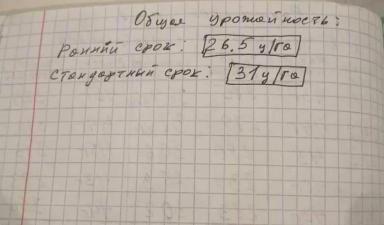 Общая урожайность:
Ранний срок: 26.5 ц/га
Стандартный срок: 31 ц/га